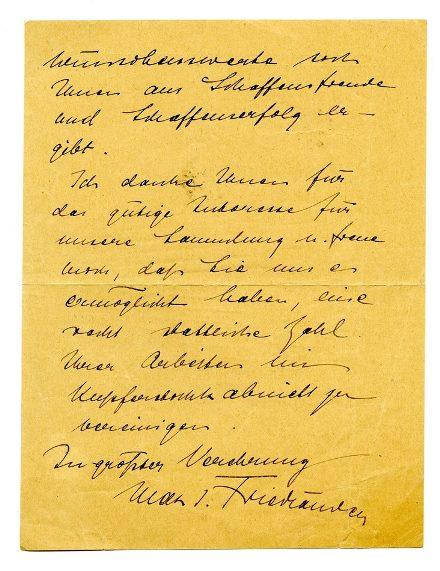 wünschenswerte sich
Ihnen aus Schaffensfreude
und Schaffenserfolg er-
gibt.
Ich danke Ihnen für
das gütige Interesse für
unsere Sammlung u. freue
mich, daß Sie uns es
ermöglicht haben, eine
recht stattliche Zahl
Ihrer Arbeiten im
Kupferstichkabinett zu
vereinigen.
In großer Verehrung
Max J. Friedländer